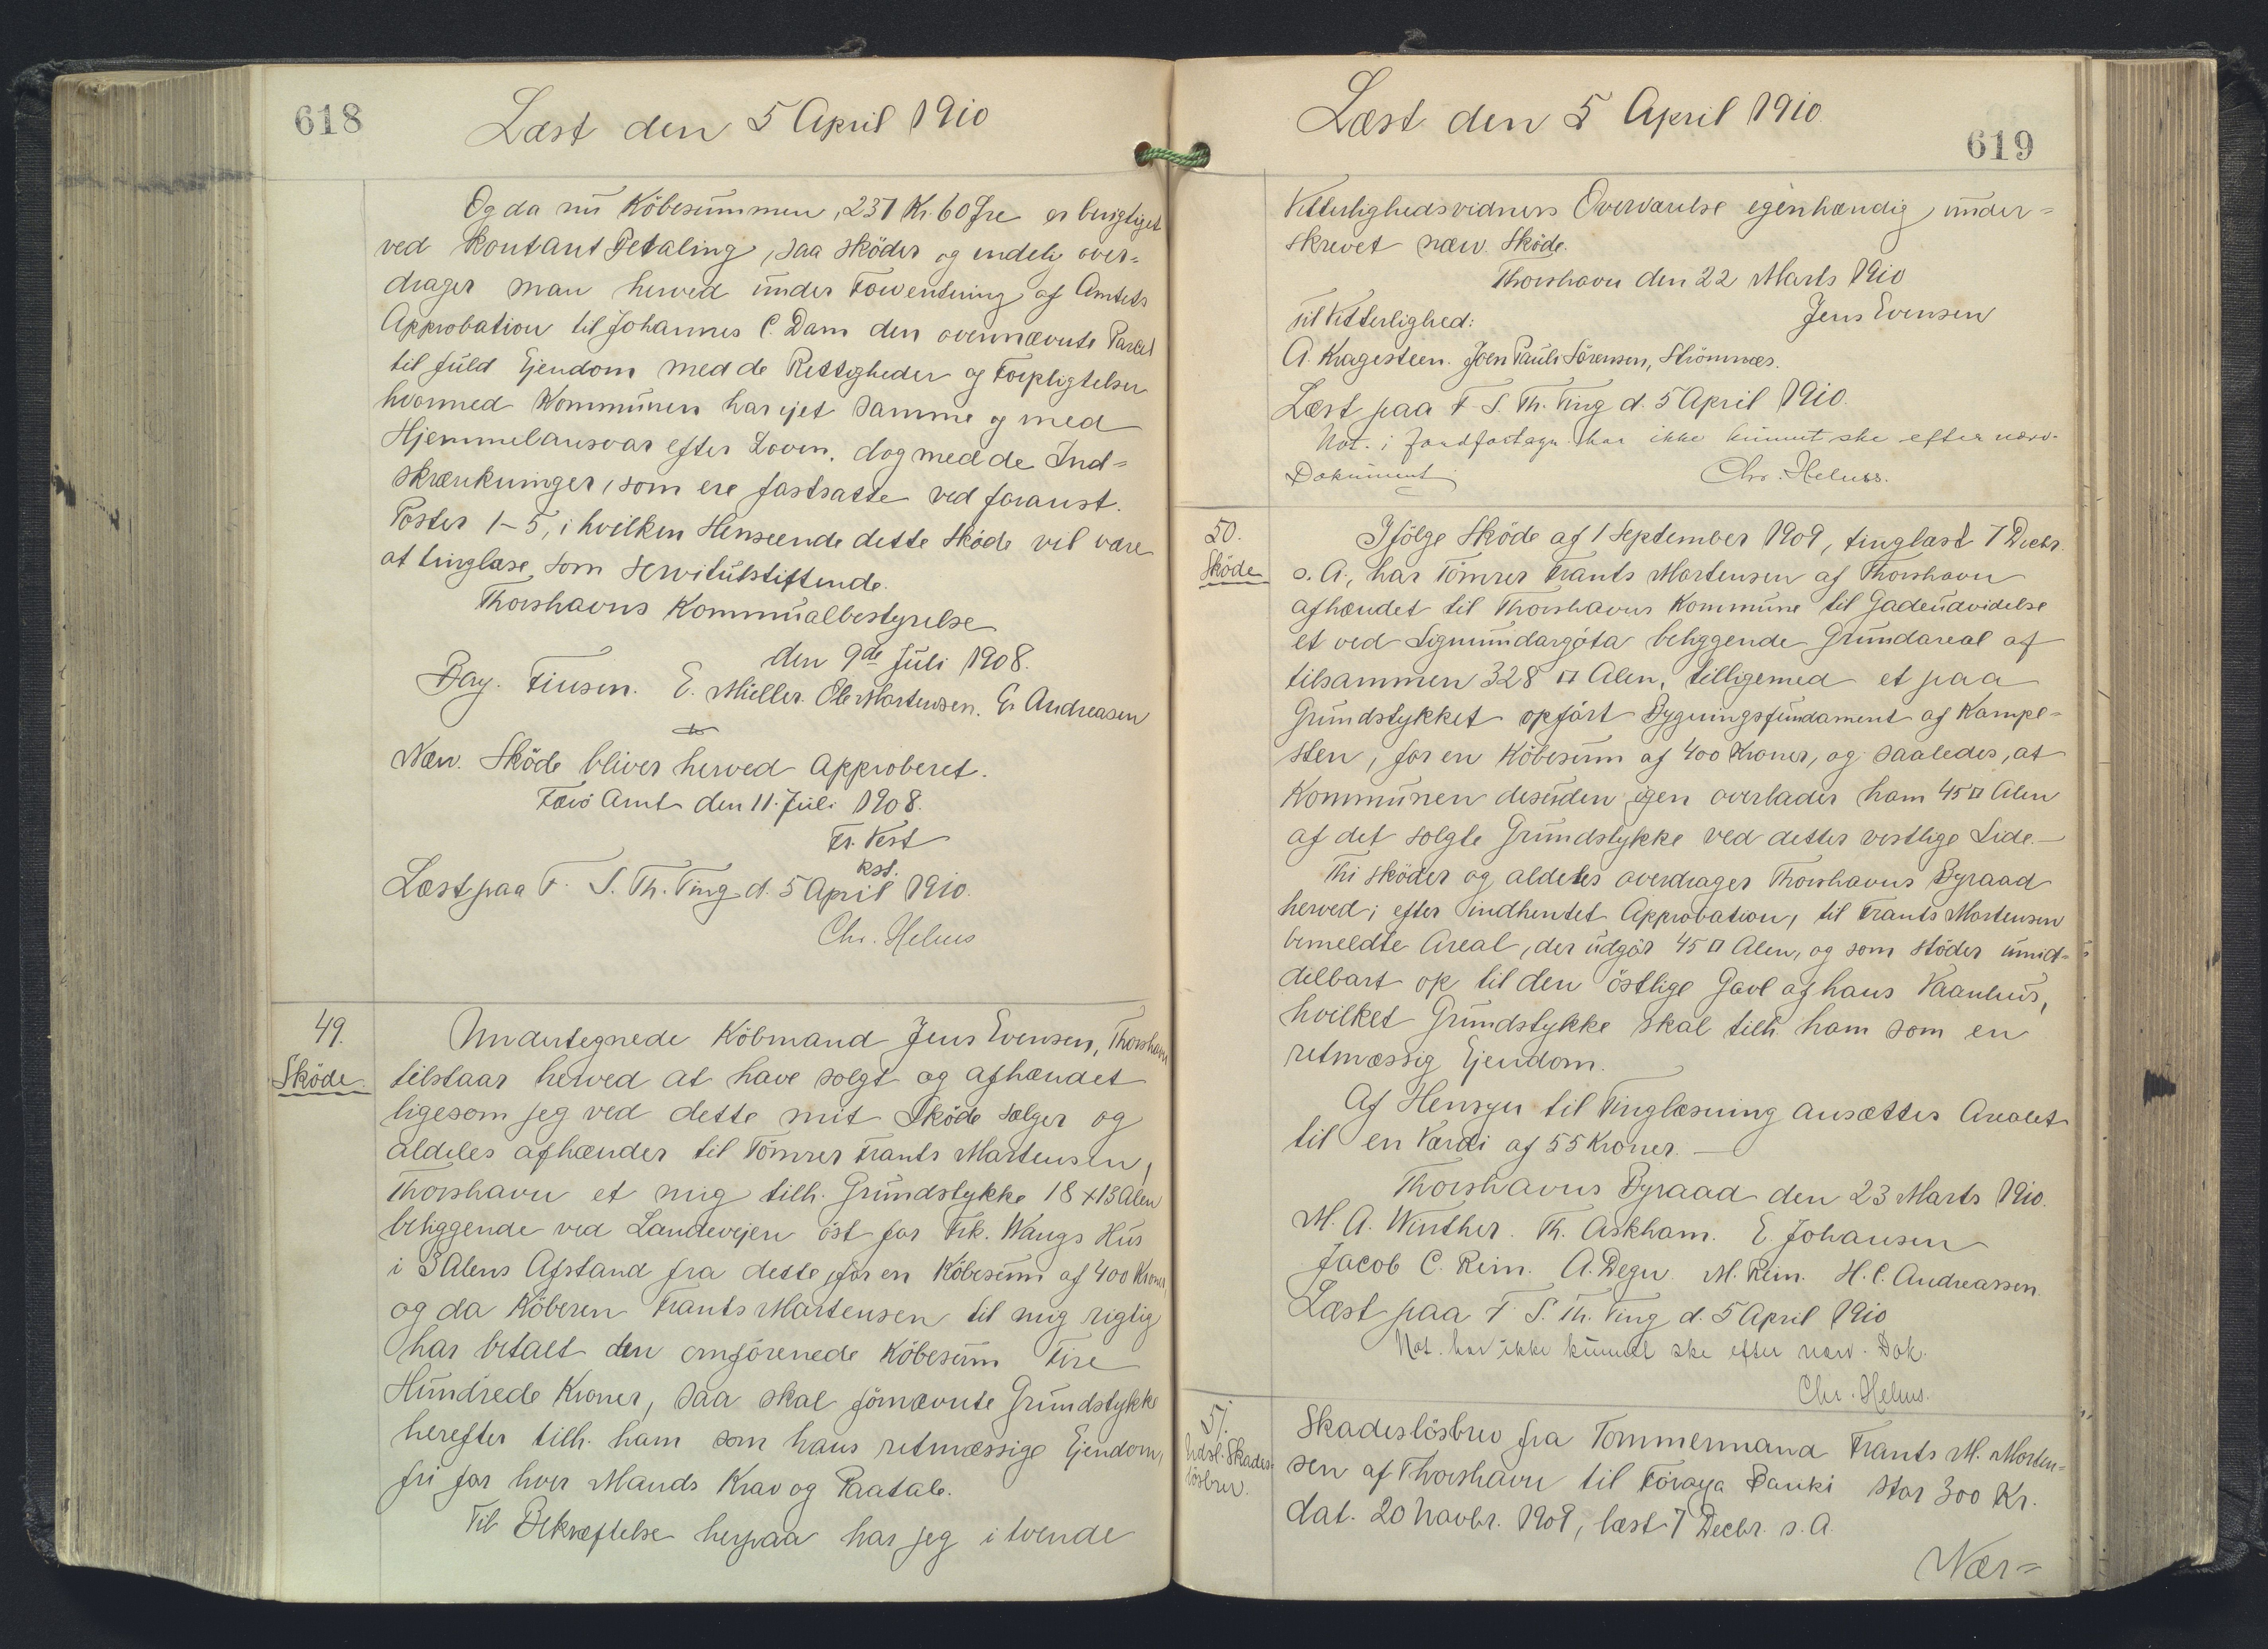 618
Læst den 5 April 1910
Og da nu Köbesummen, 237 Kr. 60 Øre er berigtiget
ved kontant Betaling, saa sköder og endelig over=
drager man herved under Forventning af Amtets
Approbation til Johannes C. Dam den ovennævnte Parcel
til fuld Ejendom med de Rettigheder og Forpligtelser
hvormed Kommunen har ejet samme og med
Hjemmelansvar efter Loven, dog med de Ind=
skrænkninger, som ere fastsatte ved foranst.
Poster 1-5, i hvilken Henseende dette Sköde vil være
at tinglæse som servitutstiftende.
Thorshavns Kommunalbestyrelse
den 9de Juli 1908.
Finsen. E. Müller. Ole Mortensen. E. Andreasen
Nærv. Sköde bliver herved approberet.
Færö Amt den 11. Juli 1908.
Fr. Vest
kst.
Læst paa F. S. Th. Ting d. 5 April 1910.
Chr. Helms
49.
Sköde.
Undertegnede Köbmand Jens Evensen, Thorshavn
tilstaar herved at have solgt og afhændet
ligesom jeg ved dette mit Sköde sælger og
aldeles afhænder til Tömrer Frants Mortensen,
Thorshavn et mig tilh. Grundstykke 18 x 13 Alen
beliggende ved Landevejen öst for Frk. Wangs Hus
i 3 Alens Afstand fra dette, for en Köbesum af 400 Kroner,
og da Köberen Frants Mortensen til mig rigtig
har betalt den omförenede Köbesum Fire
Hundrede Kroner, saa skal förnævnte Grundstykke
herefter tilh. ham som hans retmæssige Ejendom,
fri for hver Mands Krav og Paatale.
Til Bekræftelse herpaa har jeg i tvende
Læst den 5 April 1910.
619
Vitterlighedsvidners Overværelse egenhændig under=
skrevet nærv. Sköde.
Thorshavn den 22 Marts 1910
Til Vitterlighed: Jens Evensen
A. Kragesteen. Joen Pauli Sörensen, Strömnæs.
Læst paa F. S. Th. Ting d. 5 April 1910.
Not. i har ikke kunnet ske efter nærv.
Dokument Chr. Helms.
50.
Sköde
Ifölge Sköde af 1 September 1909, tinglæst 7 Decbr.
s. A., har Tömrer Frants Mortensen af Thorshavn
afhændet til Thorshavns Kommune til Gadeudvidelse
et ved Sigmundargöta beliggende Grundareal af
tilsammen 328 □ Alen, tilligemed et paa
Grundstykket opfört Bygningsfundament af Kampe=
sten, for en Köbesum af 400 Kroner, og saaledes, at
Kommunen desuden igen overlader ham 45 □ Alen
af det solgte Grundstykke ved dettes vestlige Side.—
Thi sköder og aldeles overdrager Thorshavns Byraad
herved, efter indhentet Approbation, til Frants Mortensen
bemeldte Areal, der udgör 45 □ Alen, og som stöder umid=
delbart op til den östlige Gavl af hans Vaanhus,
hvilket Grundstykke skal tilh. ham som en
retmæssig Ejendom.
Af Hensyn til Tinglæsning ansættes Arealet
til en Værdi af 55 Kroner.—
Thorshavns Byraad den 23 Marts 1910.
M. A. Winther. Th. Askham. E. Johansen
Jacob C. Rein. A. Degn. M. Rein. H. C. Andreassen.
Læst paa F. S. Th. Ting d. 5 April 1910
Not. har ikke kunnet ske efter nærv. Dok.
Chr. Helms.
51.
Udsl. Skades-
lösbrev.
Skadeslösbrev fra Tømmermand Frants M. Morten=
sen af Thorshavn til Föroya Banki stor 300 Kr.
dat. 20 Novbr. 1909, læst 7 Decbr. s. A.
Nær=